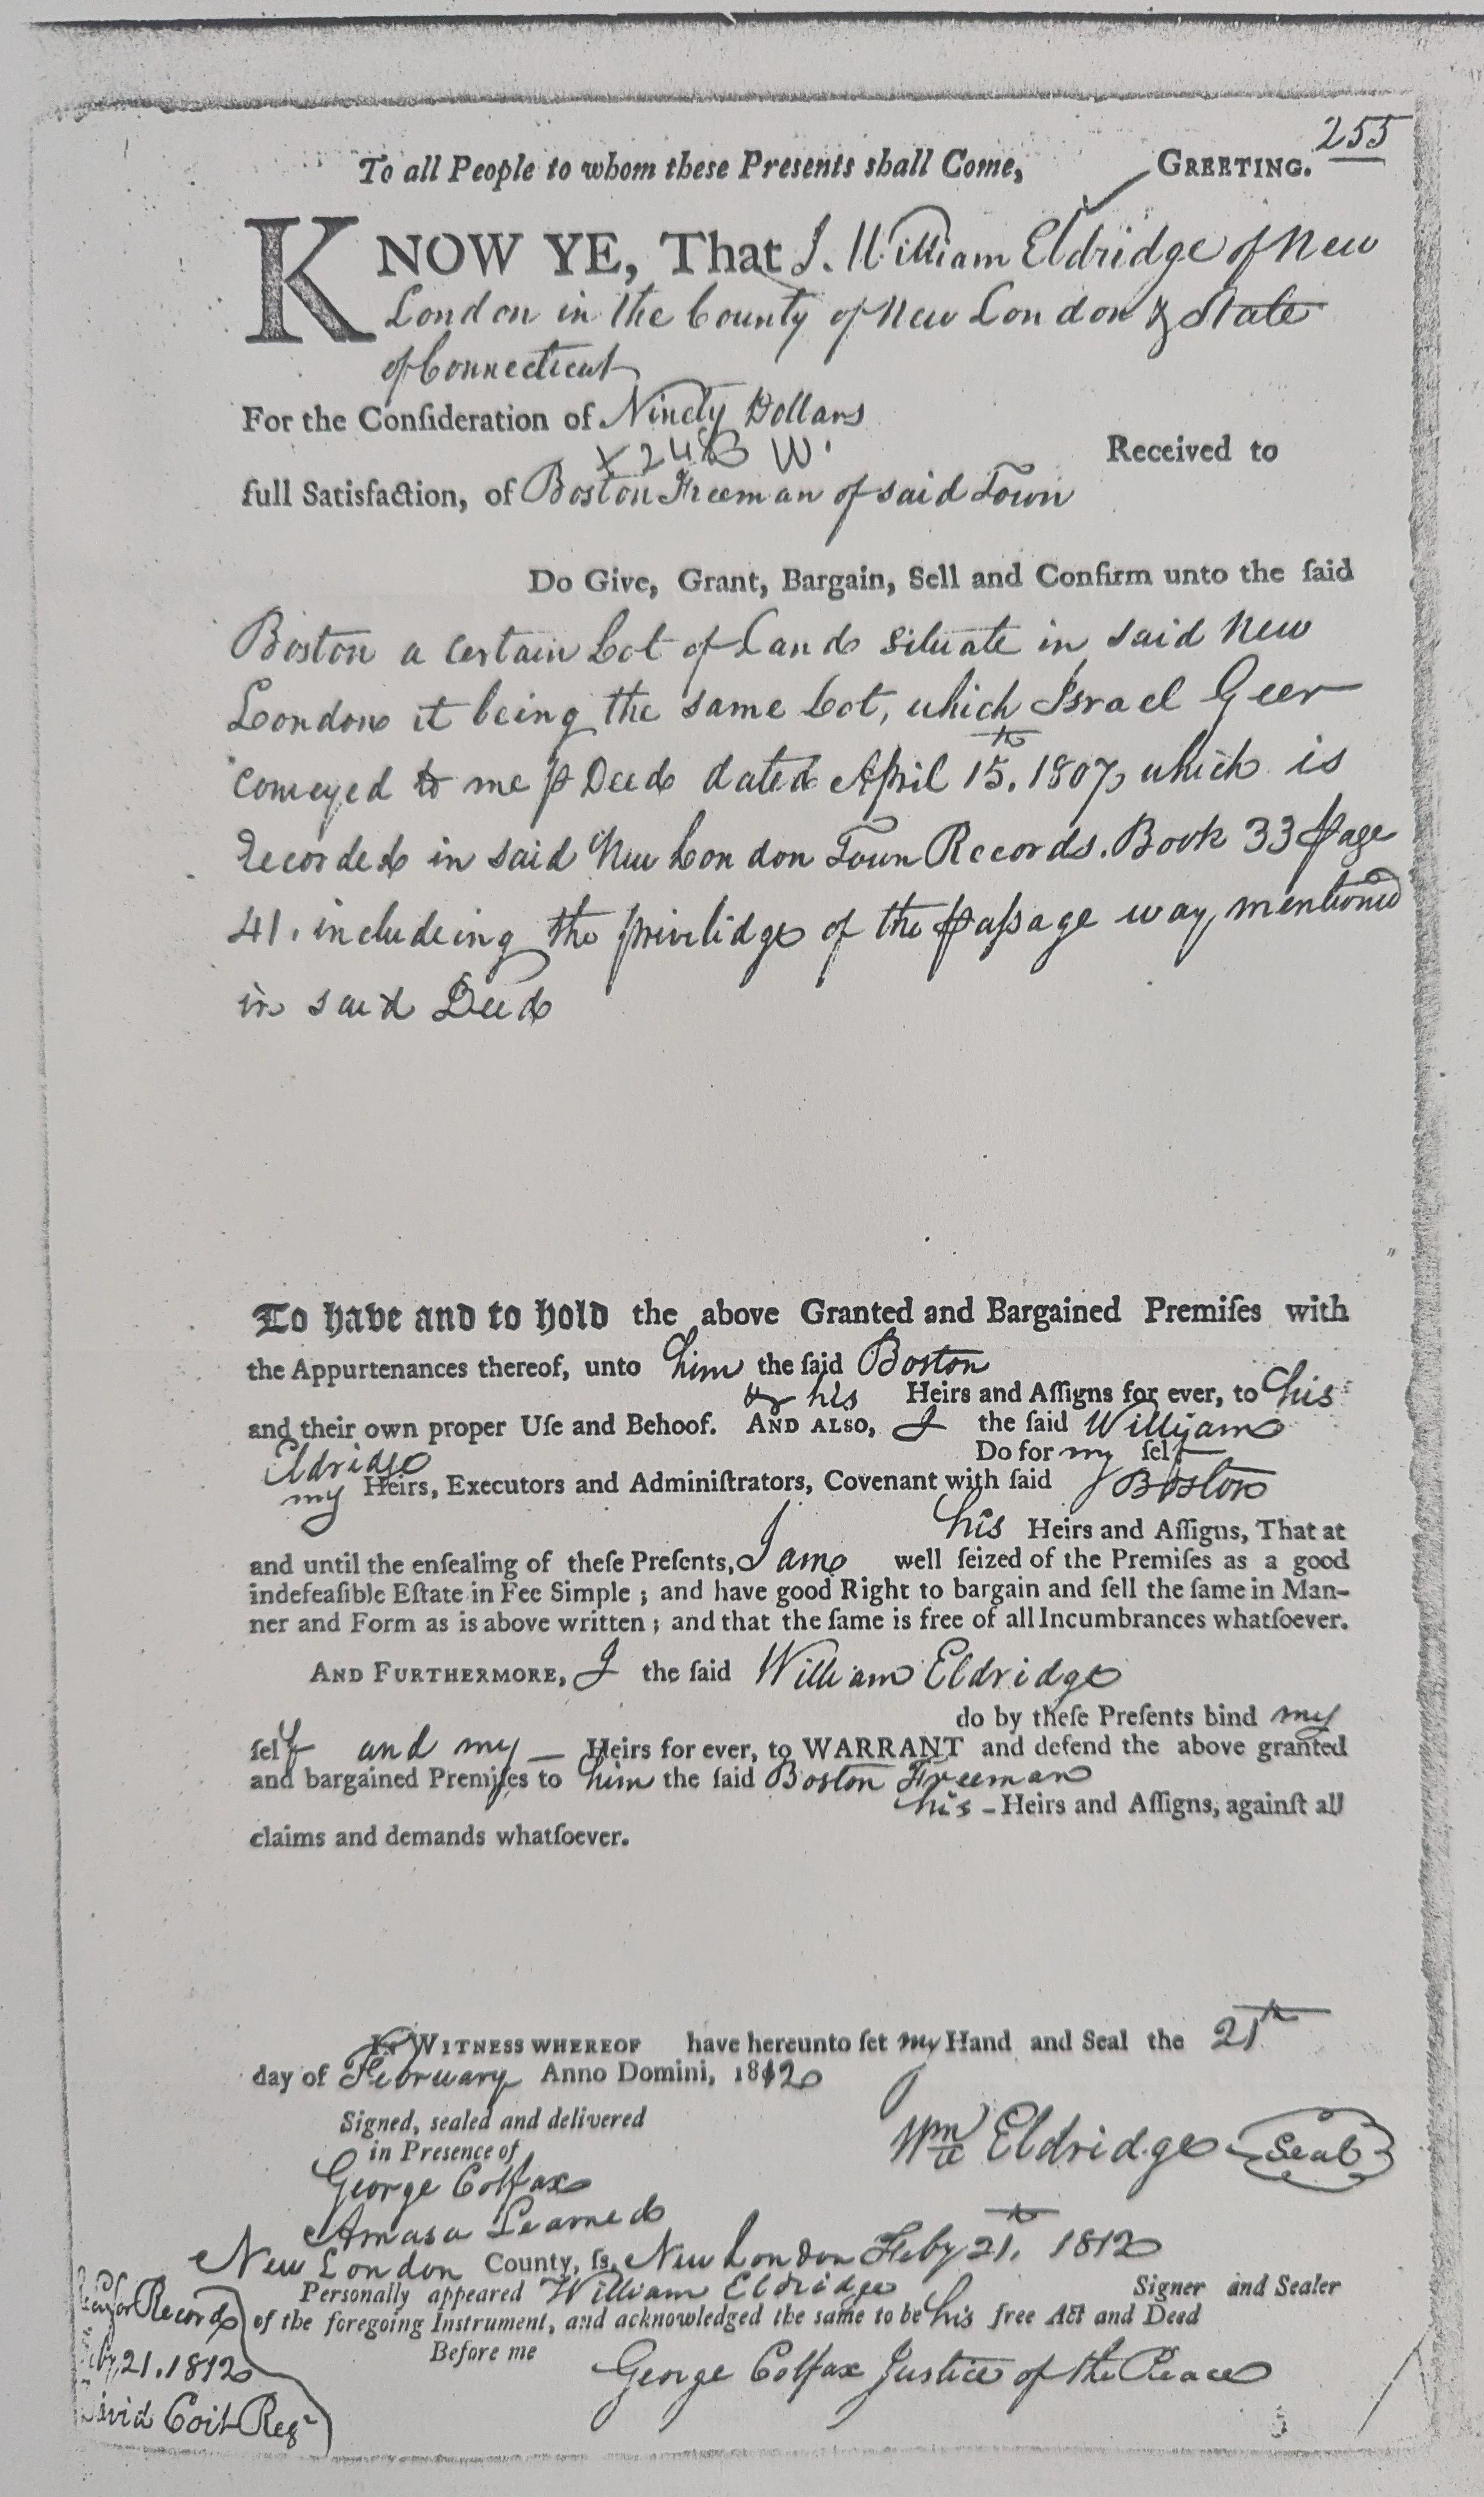 255
To all People to whom these Presents shall Come, GREETING.
KNOW YE, That I. William Eldridge of New
London in the County of New London & State
of Connecticut
For the Conſideration of Ninety Dollars
Received to
full Satisfaction, of Boston Freeman of said Town
Do Give, Grant, Bargain, Sell and Confirm unto the ſaid
Boston a certain Lot of Land situate in said New
London it being the same Lot, which Israel Geer
conveyed to me ⅌ Deed dated April 15.th 1807, which is
recorded in said New London Town Records. Book 33 Page
41. includeing the privilidge of the paſsage way, mentioned
in said Deed
To have and to hold the above Granted and Bargained Premiſes with
the Appurtenances thereof, unto him the ſaid Boston
& his Heirs and Aſſigns for ever, to his
and their own proper Uſe and Behoof. AND ALSO, I the ſaid William
Eldridge Do for my ſelf
my Heirs, Executors and Adminiſtrators, Covenant with ſaid Boston
his Heirs and Aſſigns, That at
and until the enſealing of theſe Preſents, I am well ſeized of the Premiſes as a good
indefeaſible Eſtate in Fee Simple ; and have good Right to bargain and ſell the ſame in Man-
ner and Form as is above written ; and that the ſame is free of all Incumbrances whatſoever.
AND FURTHERMORE, I the ſaid William Eldridge
do by theſe Preſents bind my
ſelf and my — Heirs for ever, to WARRANT and defend the above granted
and bargained Premiſes to him the ſaid Boston Freeman
his - Heirs and Aſſigns, againſt all
claims and demands whatſoever.
IN WITNESS WHEREOF have hereunto ſet my Hand and Seal the 21th
day of February Anno Domini, 1812
Signed, sealed and delivered
in Presence of
Wm Eldridge Seal
George Colfax
Amasa Learned
New London County, ſs. New London Feby 21.th 1812
Personally appeared William Eldridge Signer and Sealer
of the foregoing Instrument, and acknowledged the same to be his free Act and Deed
Before me
George Colfax Justice of the Peace
for Record
21. 1812
David Coit Regr